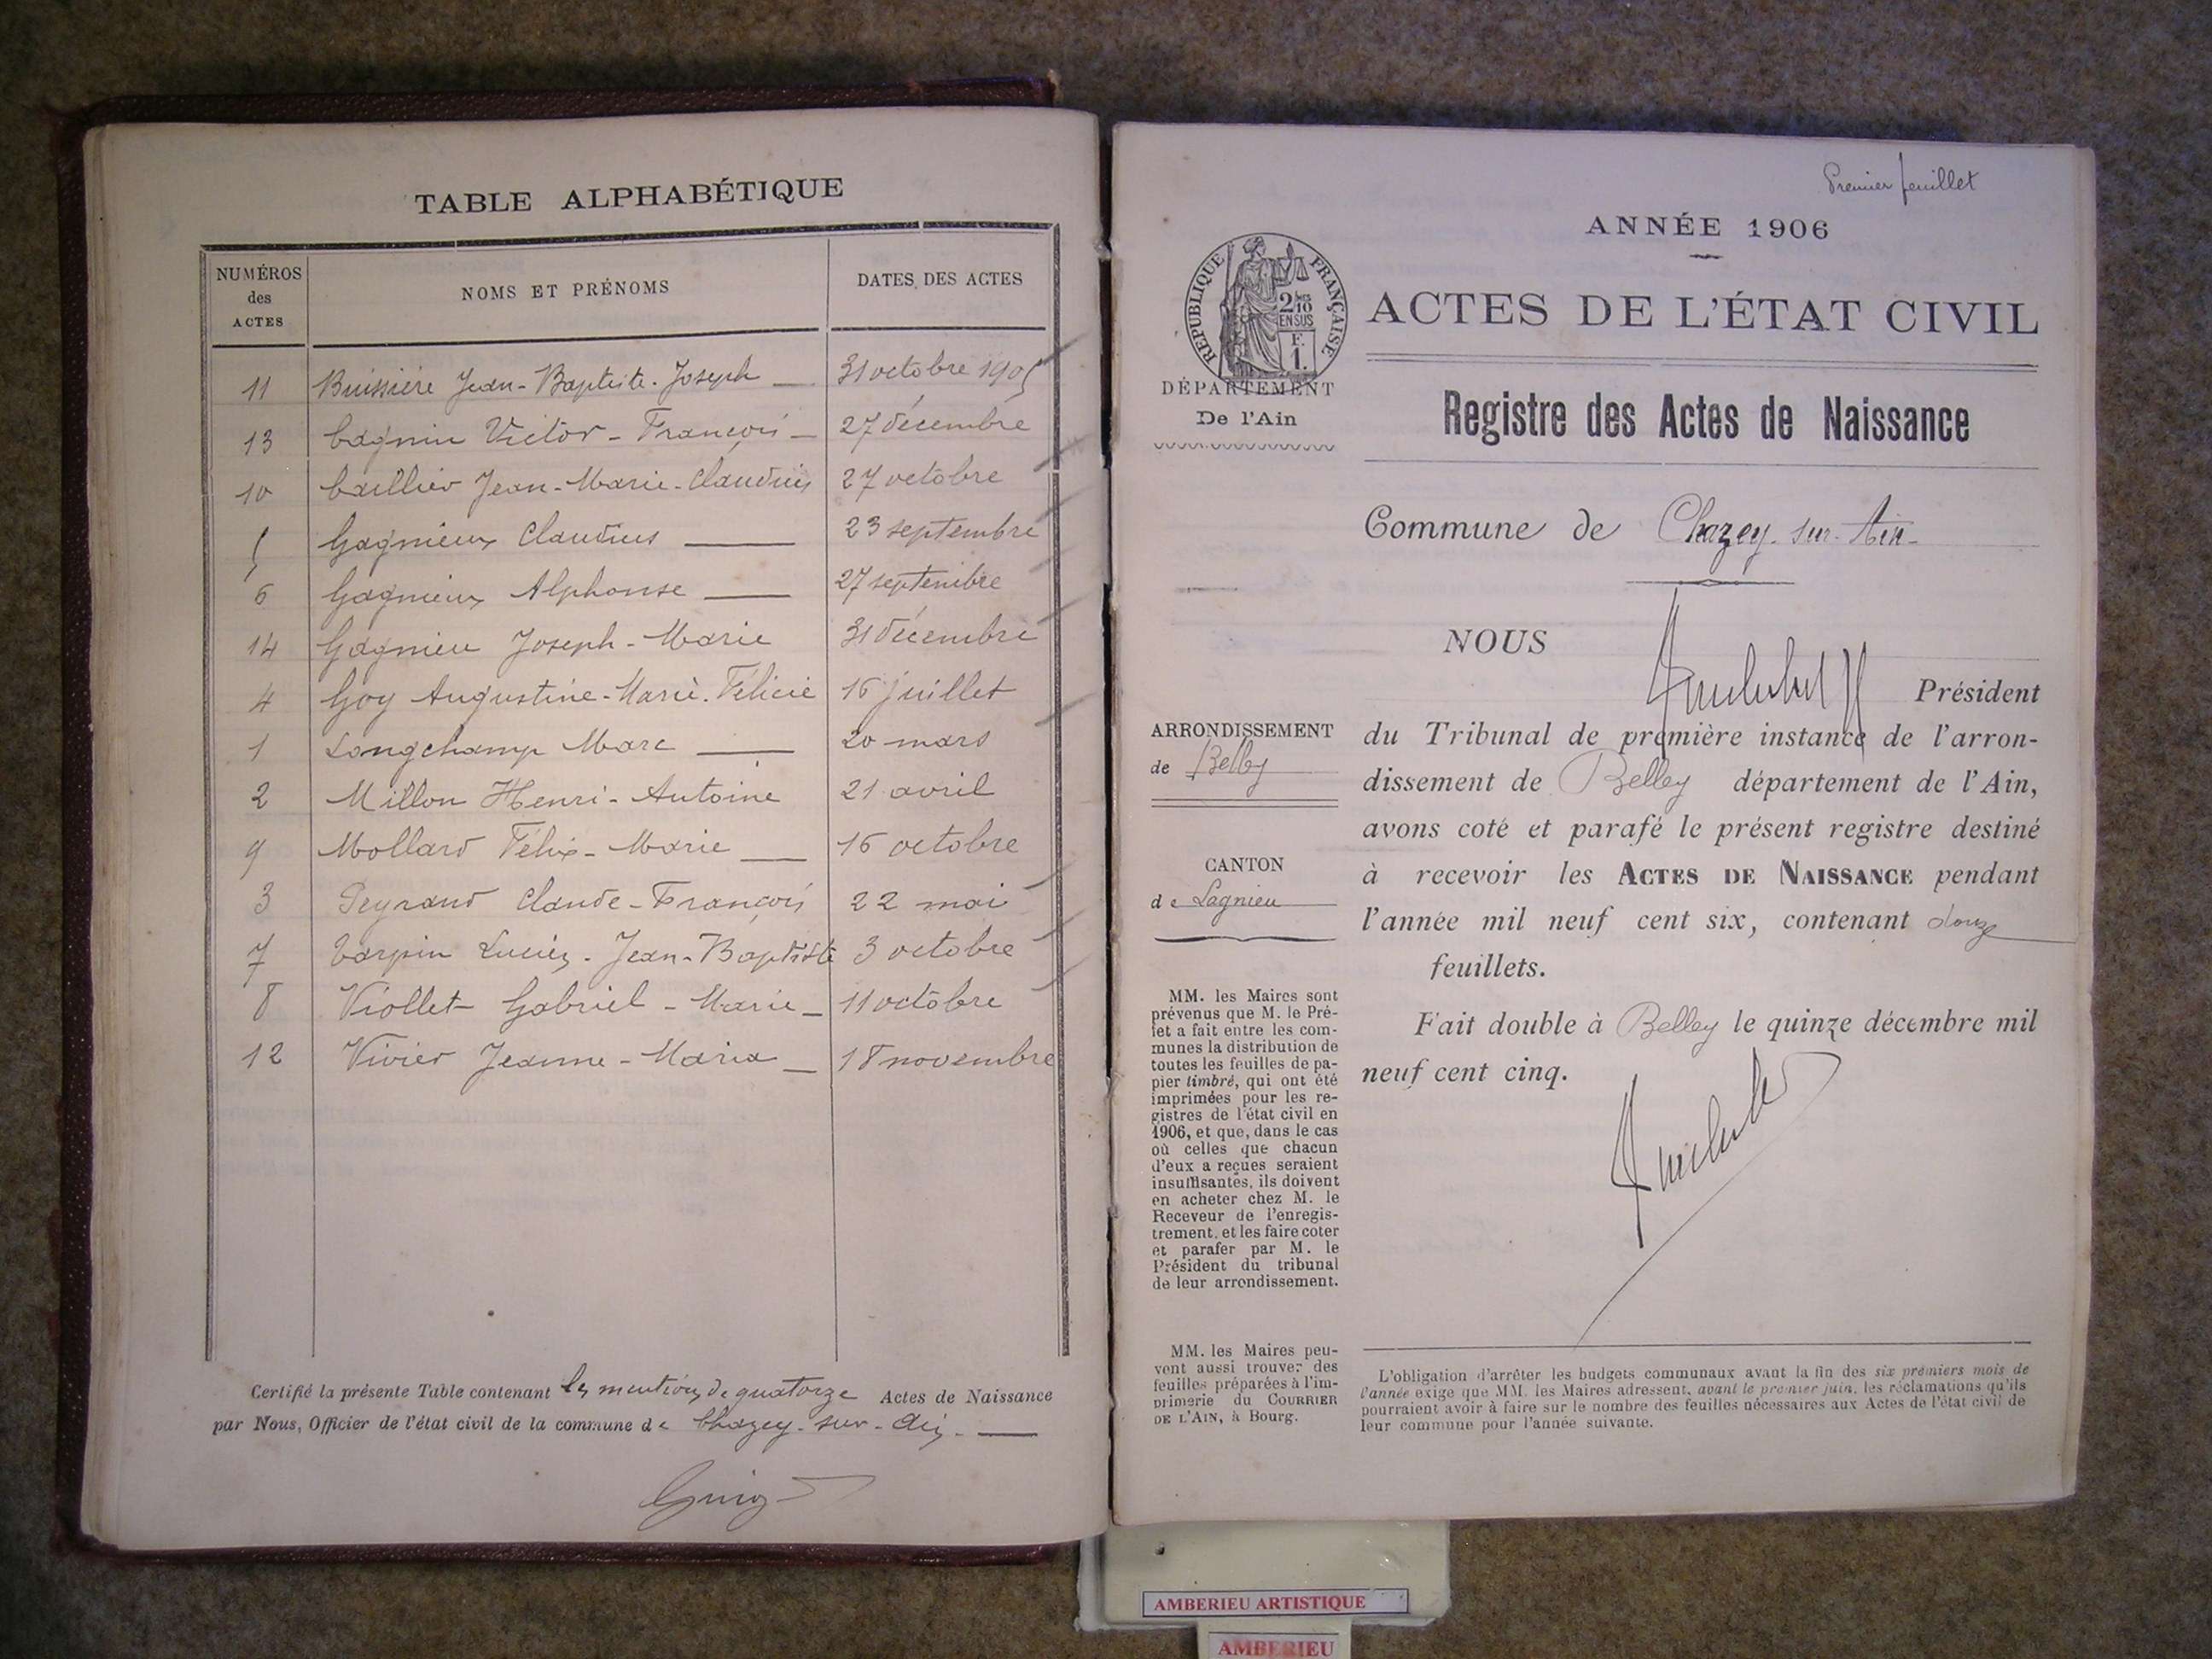 TABLE ALPHABÉTIQUE
NUMÉROS des ACTES
NOMS ET PRÉNOMS
DATES DES ACTES
11 Buissière Jean-Baptiste-Joseph — 31 octobre 1905
13 Cagnin Victor-François — 27 décembre
10 Caillier Jean-Marie-Claudius 27 octobre
5 Gagnieux Claudius — 23 septembre
6 Gagnieux Alphonse — 27 septembre
14 Gagnieu Joseph-Marie 31 décembre
4 Goy Augustine-Marie-Félicie 16 juillet
1 Longchamp Marc — 20 mars
2 Millon Henri-Antoine 21 avril
9 Mollard Félix-Marie — 16 octobre
3 Peyraud Claude-François 22 mai
7 Tarpin Lucien-Jean-Baptiste 3 octobre
8 Viollet Gabriel-Marie — 11 octobre
12 Vivier Jeanne-Maria — 18 novembre
Certifié la présente Table contenant les mentions de quatorze Actes de Naissance
par Nous, Officier de l'état civil de la commune de Chazey-sur-Ain. —
Premier feuillet
ANNÉE 1906
RÉPUBLIQUE FRANÇAISE
2/10 EN SUS
F. 1.
ACTES DE L'ÉTAT CIVIL
DÉPARTEMENT
De l'Ain
Registre des Actes de Naissance
Commune de Chazey-sur-Ain
NOUS
Président
ARRONDISSEMENT
de Belley
du Tribunal de première instance de l'arron-
dissement de Belley département de l'Ain,
avons coté et parafé le présent registre destiné
CANTON
de Lagnieu
à recevoir les ACTES DE NAISSANCE pendant
l'année mil neuf cent six, contenant douze
feuillets.
Fait double à Belley le quinze décembre mil
neuf cent cinq.
MM. les Maires sont
prévenus que M. le Pré-
fet a fait entre les com-
munes la distribution de
toutes les feuilles de pa-
pier timbré, qui ont été
imprimées pour les re-
gistres de l'état civil en
1906, et que, dans le cas
où celles que chacun
d'eux a reçues seraient
insuffisantes, ils doivent
en acheter chez M. le
Receveur de l'enregis-
trement, et les faire coter
et parafer par M. le
Président du tribunal
de leur arrondissement.
MM. les Maires peu-
vent aussi trouver des
feuilles préparées à l'im-
primerie du COURRIER
DE L'AIN, à Bourg.
L'obligation d'arrêter les budgets communaux avant la fin des six premiers mois de
l'année exige que MM. les Maires adressent, avant le premier juin, les réclamations qu'ils
pourraient avoir à faire sur le nombre des feuilles nécessaires aux Actes de l'état civil de
leur commune pour l'année suivante.
AMBERIEU ARTISTIQUE
AMBERIEU